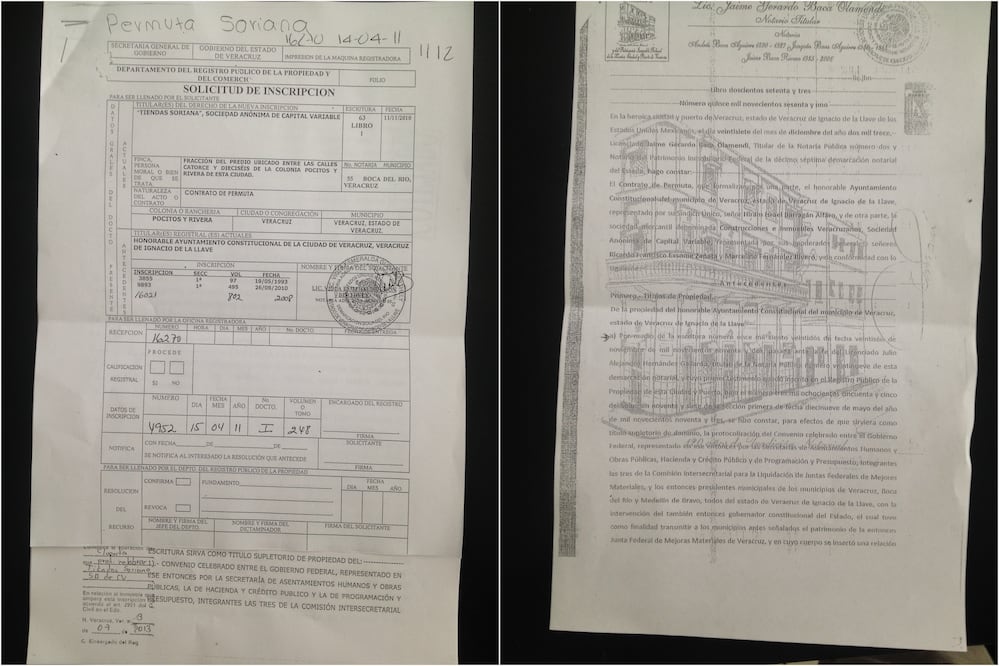 Permuta Soriana
16270 14-04-11
11/12
SECRETARIA GENERAL DE GOBIERNO
GOBIERNO DEL ESTADO DE VERACRUZ
IMPRESIÓN DE LA MAQUINA REGISTRADORA
DEPARTAMENTO DEL REGISTRO PUBLICO DE LA PROPIEDAD Y DEL COMERCIO
FOLIO
SOLICITUD DE INSCRIPCION
PARA SER LLENADO POR EL SOLICITANTE
DATOS GRALES DEL DOCTO PRESENTE
ACTUALES
ANTECEDENTES
TITULAR(ES) DEL DERECHO DE LA NUEVA INSCRIPCION
ESCRITURA
FECHA
"TIENDAS SORIANA", SOCIEDAD ANÓNIMA DE CAPITAL VARIABLE
63
LIBRO
1
11/11/2010
FINCA, PERSONA MORAL O BIEN DE QUE SE TRATA
FRACCIÓN DEL PREDIO UBICADO ENTRE LAS CALLES
CATORCE Y DIECISÉIS DE LA COLONIA POCITOS Y
RIVERA DE ESTA CIUDAD.
No. NOTARIA MUNICIPIO
55 BOCA DEL RIO, VERACRUZ
NATURALEZA DEL ACTO O CONTRATO
CONTRATO DE PERMUTA
COLONIA O RANCHERIA
CIUDAD O CONGREGACIÓN
MUNICIPIO
POCITOS Y RIVERA
VERACRUZ
VERACRUZ, ESTADO DE VERACRUZ.
TITULAR(ES) REGISTRAL (ES) ACTUALES
HONORABLE AYUNTAMIENTO CONSTITUCIONAL DE LA CIUDAD DE VERACRUZ, VERACRUZ
DE IGNACIO DE LA LLAVE
INSCRIPCIÓN
INSCRIPCION SECC VOL FECHA
3855 1ª 97 19/05/1993
9893 1ª 495 26/08/2010
16021 802 2008
PARA SER LLENADO POR LA OFICINA REGISTRADORA
RECEPCION
NUMERO HORA DIA MES AÑO No. DOCTO.
16270
CALIFICACIÓN REGISTRAL
PROCEDE
SI NO
DATOS DE INSCRIPCION
NUMERO DIA FECHA MES AÑO No. DOCTO. VOLUMEN O TOMO ENCARGADO DEL REGISTRO
4952 15 04 11 I 248
FIRMA
NOTIFICA
CON FECHA DE DE
SE NOTIFICA AL INTERESADO LA RESOLUCIÓN QUE ANTECEDE
SOLICITANTE
FIRMA
PARA SER LLENADO POR EL DEPTO. DEL REGISTRO PUBLICO DE LA PROPIEDAD
RESOLUCION DEL RECURSO
CONFIRMA
FUNDAMENTO
FECHA
DIA MES AÑO
REVOCA
NOMBRE Y FIRMA DEL JEFE DEL DEPTO.
NOMBRE Y FIRMA DEL DICTAMINADOR
FIRMA DEL SOLICITANTE
ESCRITURA SIRVA COMO TITULO SUPLETORIO DE PROPIEDAD DEL:
1).- CONVENIO CELEBRADO ENTRE EL GOBIERNO FEDERAL, REPRESENTADO EN
ESE ENTONCES POR LA SECRETARÍA DE ASENTAMIENTOS HUMANOS Y OBRAS
PÚBLICAS, LA DE HACIENDA Y CRÉDITO PUBLICO Y LA DE PROGRAMACIÓN Y
PRESUPUESTO, INTEGRANTES LAS TRES DE LA COMISIÓN INTERSECRETARIAL
En relación al inmueble que
ampara esta inscripción
acuerdo al art. 2951 del C.
Civil en el Edo.
H. Veracruz, Ver. a 8
de 07 de 2013
C. Encargado del Reg.
Lic. Jaime Gerardo Baca Olamendi
Notario Titular
Notarios
Libro doscientos setenta y tres
Número quince mil novecientos sesenta y uno
En la heroica ciudad y puerto de Veracruz, estado de Veracruz de Ignacio de la Llave de los
Estados Unidos Mexicanos, el día veintisiete del mes de diciembre del año dos mil trece,
Licenciado Jaime Gerardo Baca Olamendi, Titular de la Notaría Pública número Dos y
Notario del Patrimonio Inmobiliario Federal de la décimo séptima demarcación notarial
del Estado, hago constar:
El Contrato de Permuta, que formalizan por una parte, el honorable Ayuntamiento
Constitucional del municipio de Veracruz, estado de Veracruz de Ignacio de la Llave,
representado por su Síndico Único, señor Hirám Israel Barragán Alfaro, y de otra parte, la
sociedad mercantil denominada Construcciones e Inmuebles Veracruzanos, Sociedad
Anónima de Capital Variable, representada por sus apoderados los señores
Ricardo Francisco Exsome Zapata y Marcelino Fernández Rivero, y de conformidad con lo
siguiente:
Antecedentes
Primero.- Títulos de Propiedad.
De la propiedad del honorable Ayuntamiento Constitucional del municipio de Veracruz,
estado de Veracruz de Ignacio de la Llave
a) Por medio de la escritura número once mil veintidós de fecha veintidós de
de mil novecientos noventa y licenciado Julio
Alejandro Hernández notario titular de la Notaría Pública número nueve de esta
demarcación notarial, y cuyo primer testimonio quedó inscrito en el Registro Público de la
Propiedad de esta Ciudad y Puerto, bajo el número tres mil ochocientos cincuenta y cinco
del volumen noventa y siete de sección primera de fecha diecinueve de mayo del año
de mil novecientos noventa y tres, se hizo constar, para efectos de que sirviera como
título supletorio de dominio, la protocolización del Convenio celebrado entre el Gobierno
Federal, representado en ese entonces por las Secretarías de Asentamientos Humanos y
Obras Públicas, Hacienda y Crédito Público y de Programación y Presupuesto, integrantes
las tres de la Comisión Intersecretarial para la Liquidación de Juntas Federales de Mejoras
Materiales, y los entonces presidentes municipales de los municipios de Veracruz, Boca
del Río y Medellín de Bravo, todos del estado de Veracruz de Ignacio de la Llave, con la
intervención del también entonces gobernador constitucional del Estado, el cual tuvo
como finalidad transmitir a los municipios antes señalados el patrimonio de la entonces
Junta Federal de Mejoras Materiales de Veracruz, y en cuyo cuerpo se insertó una relación